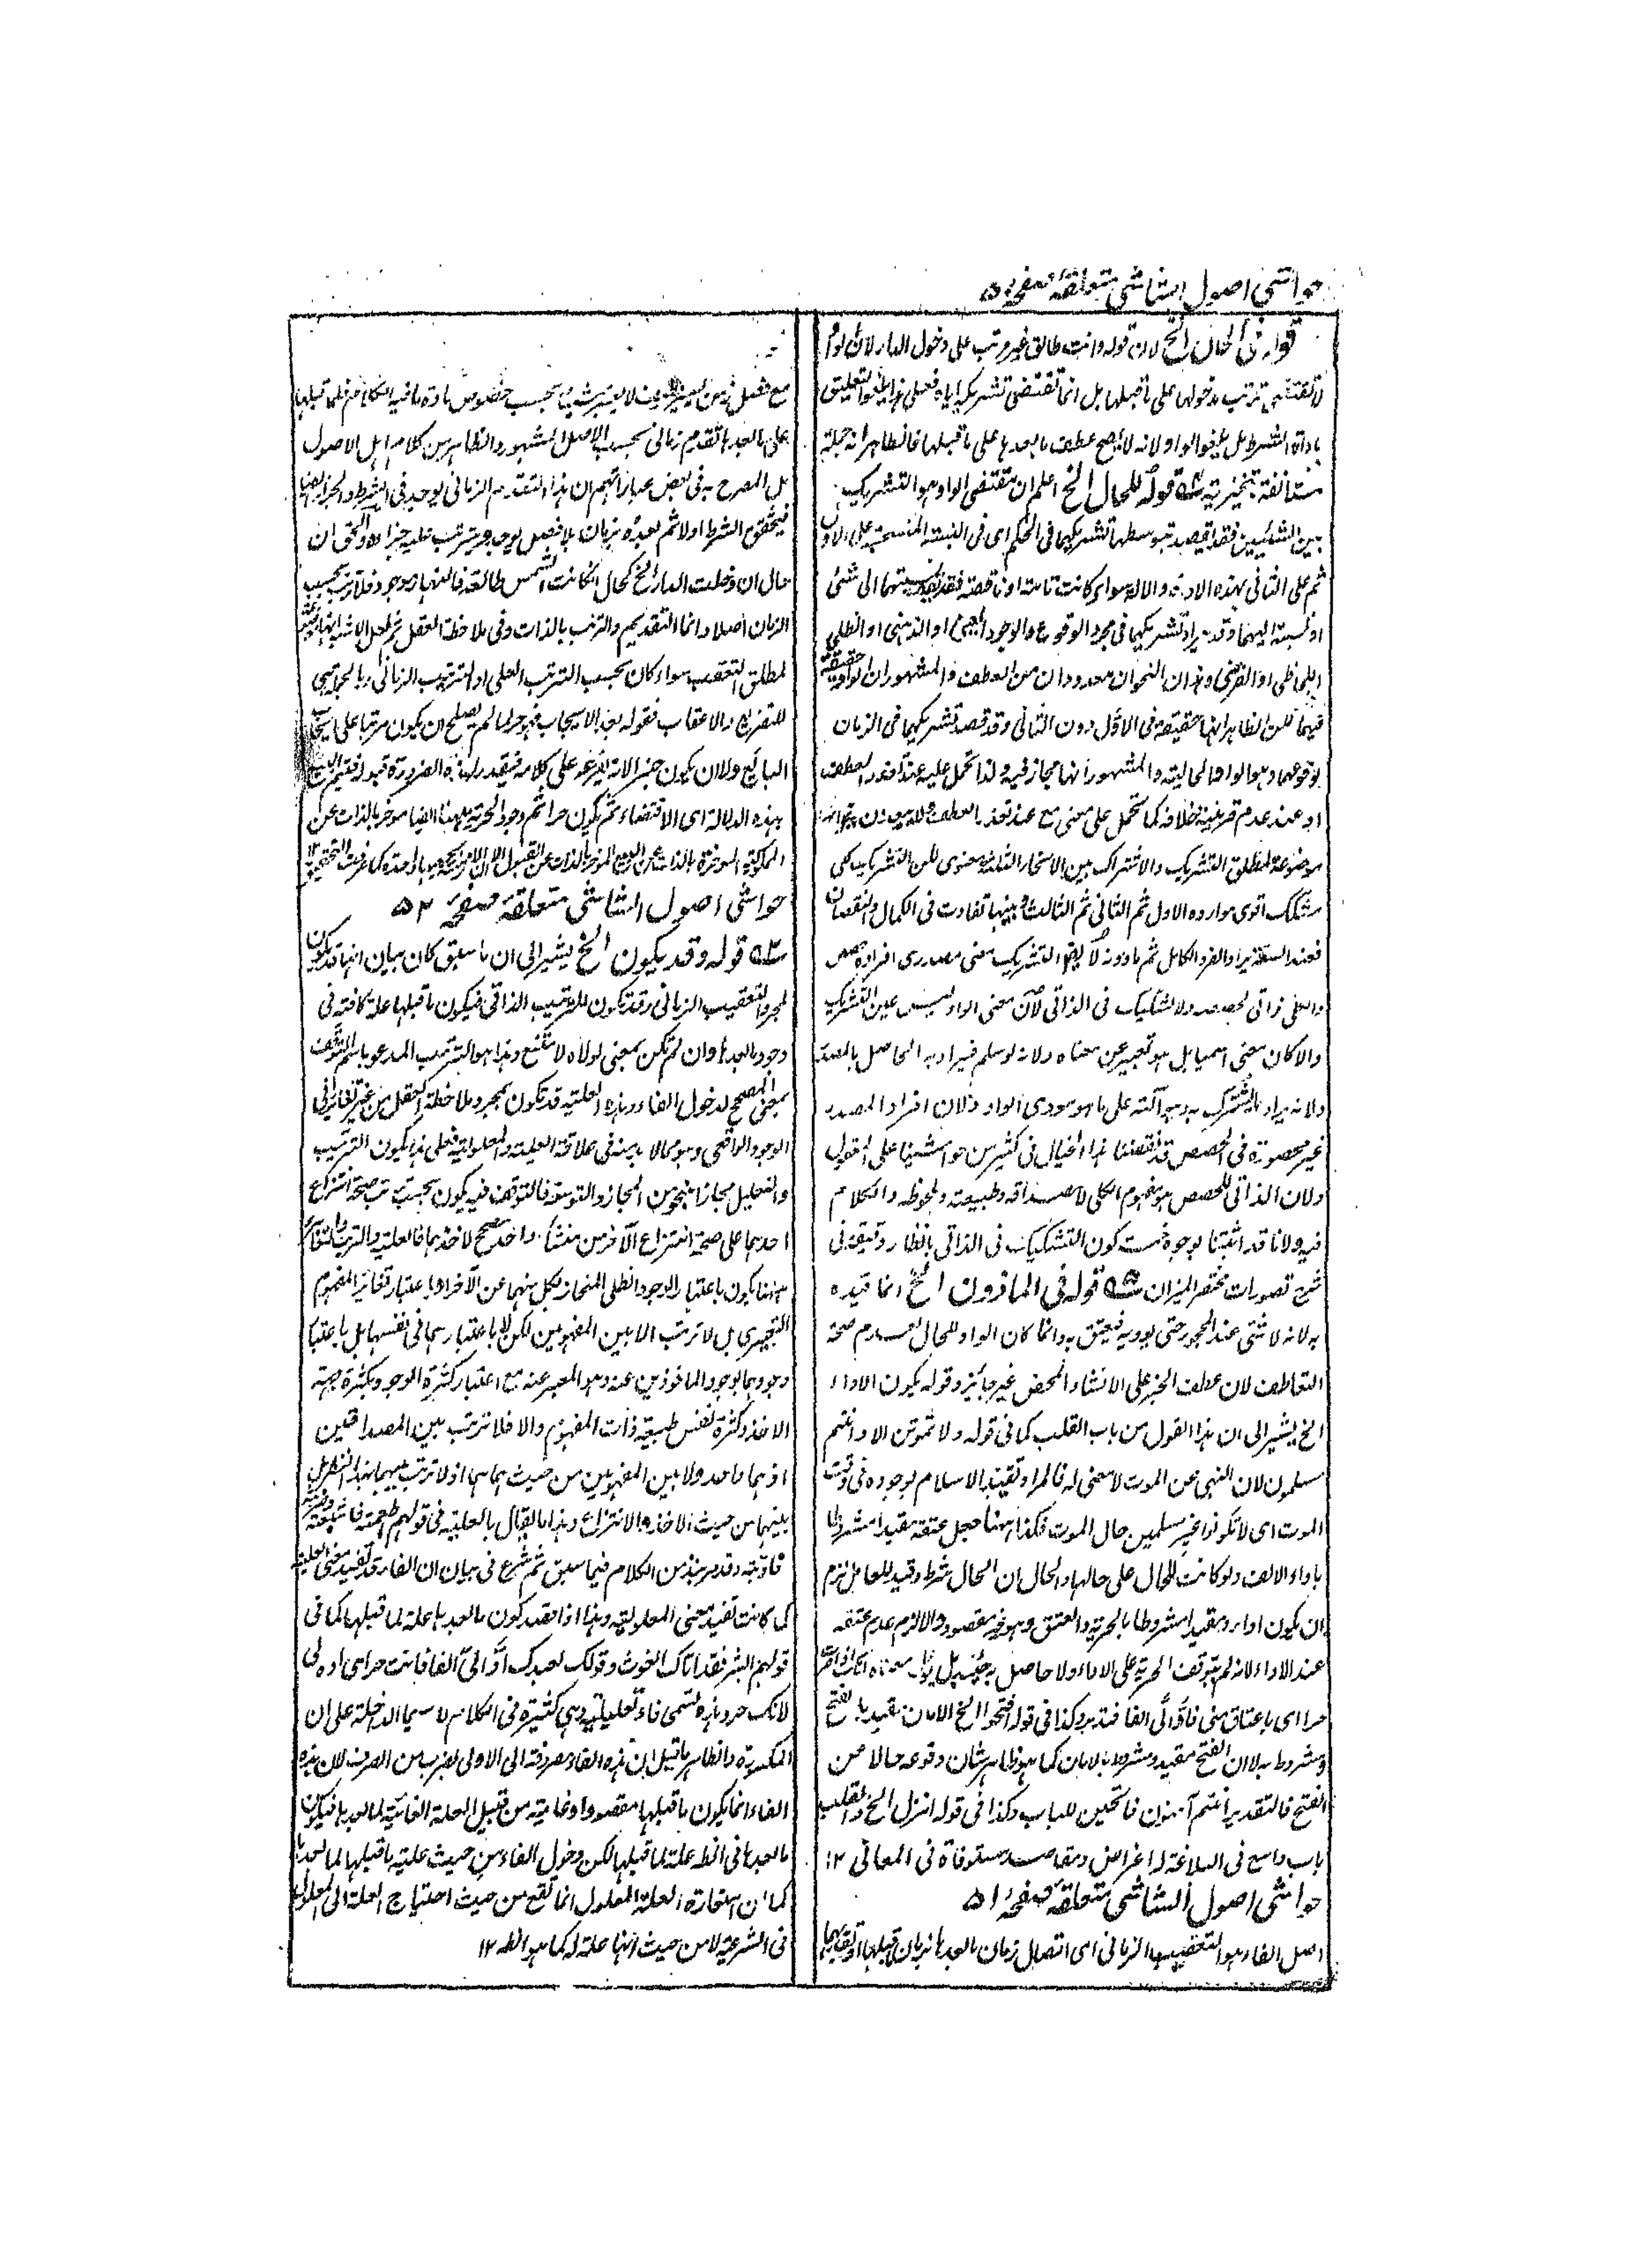 حواشی اصول الشاشی متعلقہ صفحہ ۵۰
قوله فی الحال الخ لان قوله وانت طالق غیر مرتب علی دخول الدار لان الواو
لا تقتضی ترتب مدخولها علی ما قبلها بل انما تقتضی تشریکه ایاه فعلی هذا التعلیق
باداة الشرط بل یلغو الواو ولانه لا یصح عطف ما بعدها علی ما قبلها فالظاهر انه جملة
مستانفة تنجیزیة قوله للحال الخ اعلم ان مقتضی الواو هو التشریک
بین الشیئین فقد یقصد بتوسطها تشریکهما فی الحکم ای فی النسبة المنسحبة علی الاول
ثم علی الثانی بهذه الاداة والآلة سواء کانت تامة او ناقصة فقد نسبتهما الی شئ
او نسبته الیهما وقد یراد تشریکهما فی مجرد الوقوع والوجود العینی او الذهنی او الظلی
اللحاظی او الفرضی وهذان النحوان معدودان من العطف والمشهور ان الواو حقیقة
فیهما لکن الظاهر انها حقیقة فی الاول دون الثانی وقد قصد تشریکهما فی الزمان
بوقوعهما وهو الواو الحالیة والمشهور انها مجاز فیه ولذا تحمل علیه عند تعذر العطف
او عند عدم قرینة خلافه کما تحمل علی معنی مع عند تعذر العطف
موضوعة لمطلق التشریک والاشتراک بین الانحاء الثلثة معنوی لکن التشریک کلی
مشکک اقوی موارده الاول ثم الثانی ثم الثالث وبینها تفاوت فی الکمال والنقصان
فعند السعة یراد الفرد الکامل ثم ما دونه لا یقال التشریک معنی مصدری افراده حصص
والکلی ذاتی لحصصه ولا تشکیک فی الذاتی لان معنی الواو لیس عین التشریک
والا کان معنی اسمیا بل هو تعبیر عن معناه ولانه لو سلم فیراد به الحاصل بالمصدر
ولانه یراد بالتشریک به وبهو آکته علی ما هو مودی الواو ولان افراد المصدر
غیر محصورة فی الحصص قد نقضنا هذا الخیال فی کثیر من حواشینا علی المعقول
ولان الذاتی للحصص هو مفهوم الکلی لا مصداقه وطبیعته وملحوظه والکلام
فیه ولانا قد اثبتنا بوجوه خمسة کون التشکیک فی الذاتی بانظار دقیقة فی
شرح تصورات مختصر المیزان قوله فی الماذون الخ انما قیده
به لانه لا شئ عند المحجور حتی یؤدیه فیعتق به وانما کان الواو للحال لعدم صحة
التعاطف لان عطف الخبر علی الانشاء المحض غیر جائز وقوله یکون الاداء
الخ یشیر الی ان هذا القول من باب القلب کما فی قوله ولا تموتن الا وانتم
مسلمون لان النهی عن الموت لا معنی له فالمراد تقیید الاسلام بوجوده فی وقت
الموت ای لا تکونوا غیر مسلمین حال الموت فکذا ههنا جعل عتقه مقیدا مشروطا
باداء الالف ولو کانت للحال علی حالها والحال ان الحال شرط وقید للعامل لزم
ان یکون اداءه مقیدا مشروطا بالحریة والعتق وهو غیر مقصود والا لزم عدم عتقه
عند الاداء لانه لم یتوقف الحریة علی الاداء ولا حاصل به حینئذ بل یؤل معناه
حرا ای باعتاق منی فاد الی الفا فتدبر وکذا فی قوله افتحوا الخ الامان مقید بالفتح
ومشروط به لا ان الفتح مقید ومشروط بالامان کما هو ظاهر شان وقوعه حالا من
الفتح فالتقدیر انتم آمنون فاتحین للباب وکذا فی قوله انزل الخ والقلب
باب واسع فی البلاغة له اغراض ومقاصد مستوفاة فی المعانی ۱۲
حواشی اصول الشاشی متعلقہ صفحہ ۵۱
اصل الفاء هو التعقیب الزمانی ای اتصال زمان ما بعدها بزمان ما قبلها
مع فصل زمان یسیر لا یعتبر شیئا بحسب خصوص مادة ما فیه الکلام
علی ما بعدها تقدم زمانی بحسب الاصل المشهور والظاهر من کلام اهل الاصول
بل المصرح به فی بعض عباراتهم ان هذا التقدم الزمانی یوجد فی الشرط والجزاء ایضا
فیتحقق الشرط اولا ثم بعده بزمان بلا فصل یوجد ویترتب علیه جزاءه والحق ان
حال ان دخلت الدار الخ کحال ان کانت الشمس طالعة فالنهار موجود فلا ترتب بحسب
الزمان اصلا وانما التقدیم والترتب بالذات وفی ملاحظة العقل
لمطلق التعقیب سواء کان بحسب الترتب العلی او الترتیب الزمانی
للتفریع والاعقاب فقوله بعد الایجاب فهو حر لما لم یصلح ان یکون مرتبا علی ایجاب
البائع ولا ان یکون خبرا لانه یفرعه علی کلامه فیقدر لهذه الضرورة قبوله
بهذه الدلالة ای الاقتضاء ثم یکون حرا ثم وجود الحریة ههنا ایضا موخر بالذات عن
المملوکیة الموخرة بالذات عن البیع الموخر بالذات عن القبول
حواشی اصول الشاشی متعلقہ صفحہ ۵۲
قوله وقد یکون الخ یشیر الی ان ما سبق کان بیان انها قد یکون
لمجرد التعقیب الزمانی وقد تکون للترتیب الذاتی فیکون ما قبلها علة کافیة فی
وجود ما بعدها وان لم تکن بمعنی لولاه لامتنع وهذا هو الترتب المدعو باسم التوقف
بمعنی المصحح لدخول الفاء وهذه العلیة قد تکون بمجرد ملاحظة العقل من غیر تغایر فی
الوجود الواقعی وهو مما لا بد منه فی علاقة العلیة والمعلولیة فعلی هذا یکون الترتیب
والتعلیل مجازا بنحو من المجاز والتوسع فالتوقف فیه یکون بحسب ترتب صحة انتزاع
احدهما علی صحة انتزاع الآخر من منشأ واحد مصحح لاخذهما فالعلیة والترتب والتغایر
ههنا یکون باعتبار الوجود الظلی المنحاز لکل منهما عن الآخر او باعتبار تغایر المفهوم
التعبیری بل لا ترتب الا بین المفهومین لکن لا باعتبارهما فی نفسهما بل باعتبار
وجودهما بوجود الماخوذین عنه وهو المعبر عنه مع اعتبار کثرة الوجود وبکثرة جهة
الاخذ وکثرة نفس طبیعة ذات المفهوم والا فلا ترتب بین المصداقین
اذ هما واحد ولا بین المفهومین من حیث هما هما اذ لا ترتب بینهما بهذا النظر بل
بینهما من حیث الاخذ والانتزاع وهذا ما یقال بالعلیة فی قولهم اطعمته فاشبعته وضربته
فاوجعته وقد مر نبذ من الکلام فیما سبق ثم شرع فی بیان ان الفاء قد تفید معنی العلیة
کما کانت تفید معنی المعلولیة وهذا اذا قصد کون ما بعدها علة لما قبلها کما فی
قولهم ابشر فقد اتاک الغوث وقولک لعبدک اد الی الفا فانت حر ای اده لی
لانک حر وهذه تسمی فاء تعلیلیة وهی کثیرة فی الکلام لا سیما الداخلة علی ان
المکسورة والظاهر ما قیل ان هذه الفاء مصروفة الی الاولی بضرب من الصرف لان هذه
الفاء انما یکون ما قبلها مقصودا وغایة من قبیل العلة الغائیة لما بعدها فیکون
ما بعدها فی الظ علة لما قبلها لکن دخول الفاء من حیث علیة ما قبلها لما بعدها
کما ان استعارة العلة للمعلول انما تقع من حیث احتیاج العلة الی المعلول
فی الشرعیة لا من حیث انها علة له کما هو الظ ۱۲